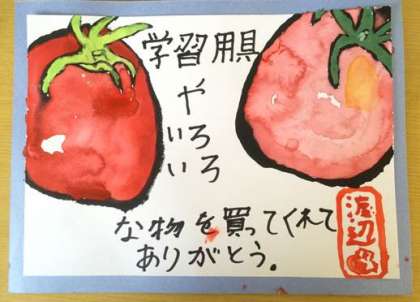 学習用具
や
いろ
いろ
な物を買ってくれて
ありがとう。
渡辺